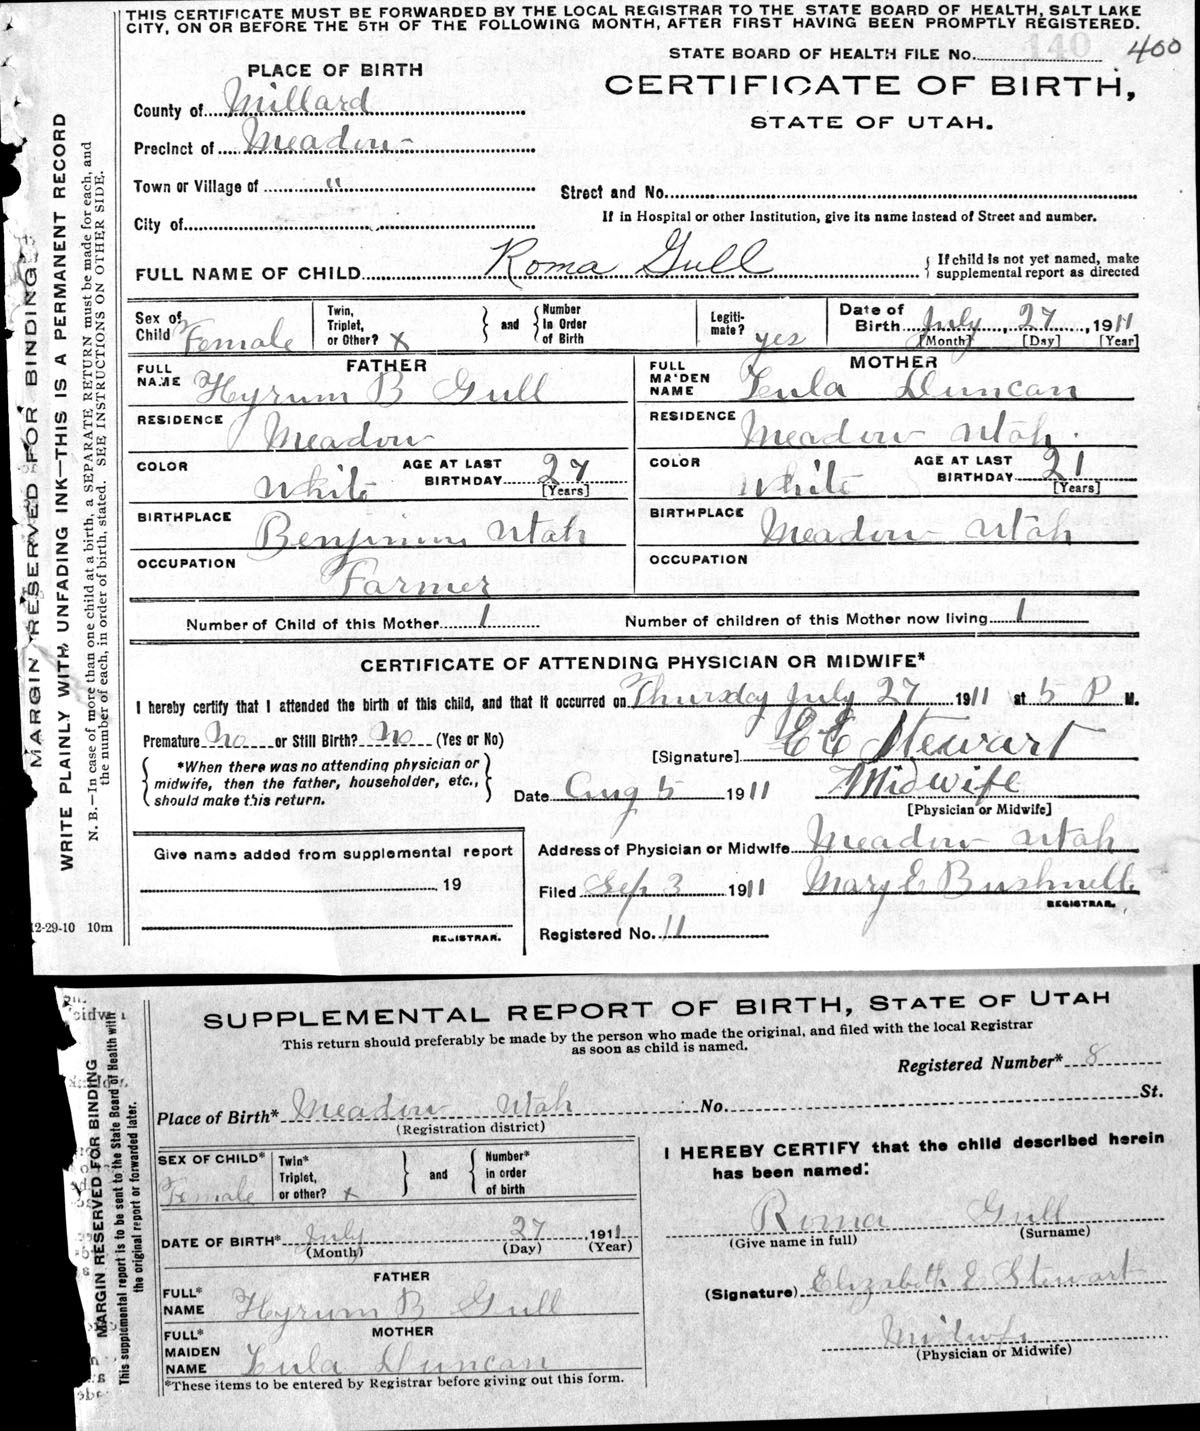 THIS CERTIFICATE MUST BE FORWARDED BY THE LOCAL REGISTRAR TO THE STATE BOARD OF HEALTH, SALT LAKE
CITY, ON OR BEFORE THE 5TH OF THE FOLLOWING MONTH, AFTER FIRST HAVING BEEN PROMPTLY REGISTERED.
STATE BOARD OF HEALTH FILE No. 140 400
PLACE OF BIRTH
CERTIFICATE OF BIRTH,
STATE OF UTAH.
County of Millard
Precinct of Meadow
Town or Village of "
Street and No.
City of
If in Hospital or other Institution, give its name instead of Street and number.
FULL NAME OF CHILD Roma Gull
{ If child is not yet named, make
supplemental report as directed
Sex of Child Female
Twin, Triplet, or Other? x
} and { Number in Order of Birth
Legiti-mate? yes
Date of Birth July, 27, 1911
[Month] [Day] [Year]
FATHER
FULL NAME Hyrum B Gull
RESIDENCE Meadow
COLOR White
AGE AT LAST BIRTHDAY 27 [Years]
BIRTHPLACE Benjimin Utah
OCCUPATION Farmer
MOTHER
FULL MAIDEN NAME Lula Duncan
RESIDENCE Meadow Utah.
COLOR White
AGE AT LAST BIRTHDAY 21 [Years]
BIRTHPLACE Meadow Utah
OCCUPATION
Number of Child of this Mother 1
Number of children of this Mother now living 1
CERTIFICATE OF ATTENDING PHYSICIAN OR MIDWIFE*
I hereby certify that I attended the birth of this child, and that it occurred on Thursday July 27 1911 at 5 P M.
Premature No or Still Birth? No (Yes or No)
[Signature] E E Stewart
{ *When there was no attending physician or
midwife, then the father, householder, etc.,
should make this return. }
Date Aug 5 1911
Midwife
[Physician or Midwife]
Give name added from supplemental report
19
REGISTRAR.
Address of Physician or Midwife Meadow Utah
Filed Sep 3 1911 Mary E Bushnell
REGISTRAR.
Registered No. 11
MARGIN RESERVED FOR BINDING
WRITE PLAINLY WITH UNFADING INK—THIS IS A PERMANENT RECORD
N. B.—In case of more than one child at a birth, a SEPARATE RETURN must be made for each, and
the number of each, in order of birth, stated. SEE INSTRUCTIONS ON OTHER SIDE.
12-29-10 10m
SUPPLEMENTAL REPORT OF BIRTH, STATE OF UTAH
This return should preferably be made by the person who made the original, and filed with the local Registrar
as soon as child is named.
Registered Number* 8
Place of Birth* Meadow Utah No. St.
(Registration district)
SEX OF CHILD* Female
Twin* Triplet, or other? x
} and { Number* in order of birth
DATE OF BIRTH* July 27, 1911
(Month) (Day) (Year)
FATHER
FULL* NAME Hyrum B Gull
MOTHER
FULL* MAIDEN NAME Lula Duncan
*These items to be entered by Registrar before giving out this form.
I HEREBY CERTIFY that the child described herein
has been named:
Roma Gull
(Give name in full) (Surname)
(Signature) Elizabeth E Stewart
Midwife
(Physician or Midwife)
MARGIN RESERVED FOR BINDING
This supplemental report is to be sent to the State Board of Health with
the original report or forwarded later.